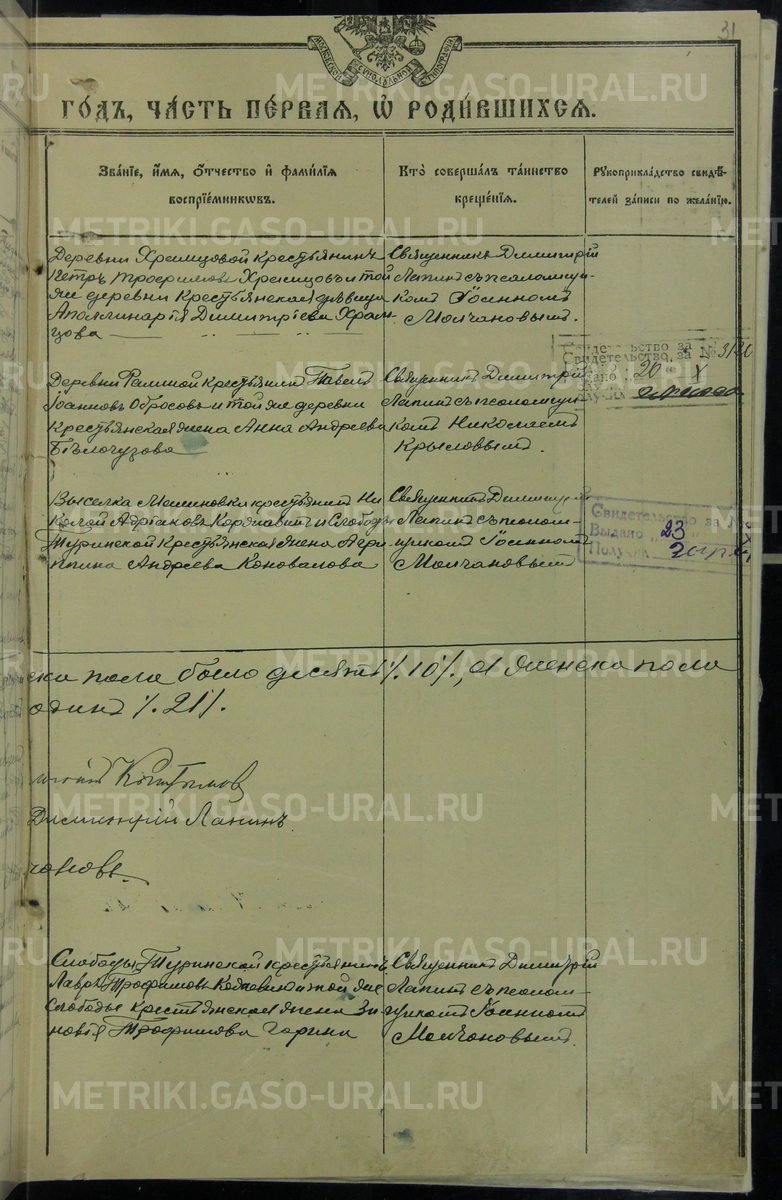 31
МОСКОВСКОЙ СѴНОДАЛЬНОЙ ТѴПОГРАФІИ
METRIKI.GASO-URAL.RU
го́дъ, ча́сть пе́рвая, ѡ҆ роди́вшихсѧ.
Зва́нїе, и҆́мѧ, ѻ҆́тчество и҆ фами́лїѧ
воспрїе́мникѡвъ.
Кто̀ соверша́лъ та́инство
креще́нїѧ.
Рꙋкоприкла́дство свидѣ́-
телей за́писи по жела́нїю.
Деревни Храмцовой крестьянинъ
Петръ Трофимовъ Храмцовъ и той
же деревни крестьянская дѣвица
Аполлинарія Димитріева Храм-
цова
Священникъ Димитрій
Лапинъ съ псаломщи-
комъ Іоанномъ
Молчановымъ.
Свидетельство за №
20 X
Деревни крестьянинъ Павелъ
Іоанновъ Обросовъ и той же деревни
крестьянская жена Анна Андреева
Бѣлочузова
Священникъ Димитрій
Лапинъ съ псаломщи-
комъ Николаемъ
Крысовымъ.
Выселка Малиновки крестьянинъ Ни-
колай Адріановъ и Слободы
Туринской крестьянская жена Агри-
ппина Андреева Коновалова
Священникъ Димитрій
Лапинъ съ псалом-
щикомъ Іоанномъ
Молчановымъ
Свидетельство за №
Выдано 23
Получил
ска пола было десять %.10%, а женска пола
одинъ %.21%.
Димитрій Лапинъ.
чановъ.
Слободы Туринской крестьянинъ
Лавръ Трофимовъ и той же
Слободы крестьянская жена Зи-
новія Трофимова Гарина
Священникъ Димитрій
Лапинъ съ псалом-
щикомъ Іоанномъ
Молчановымъ.